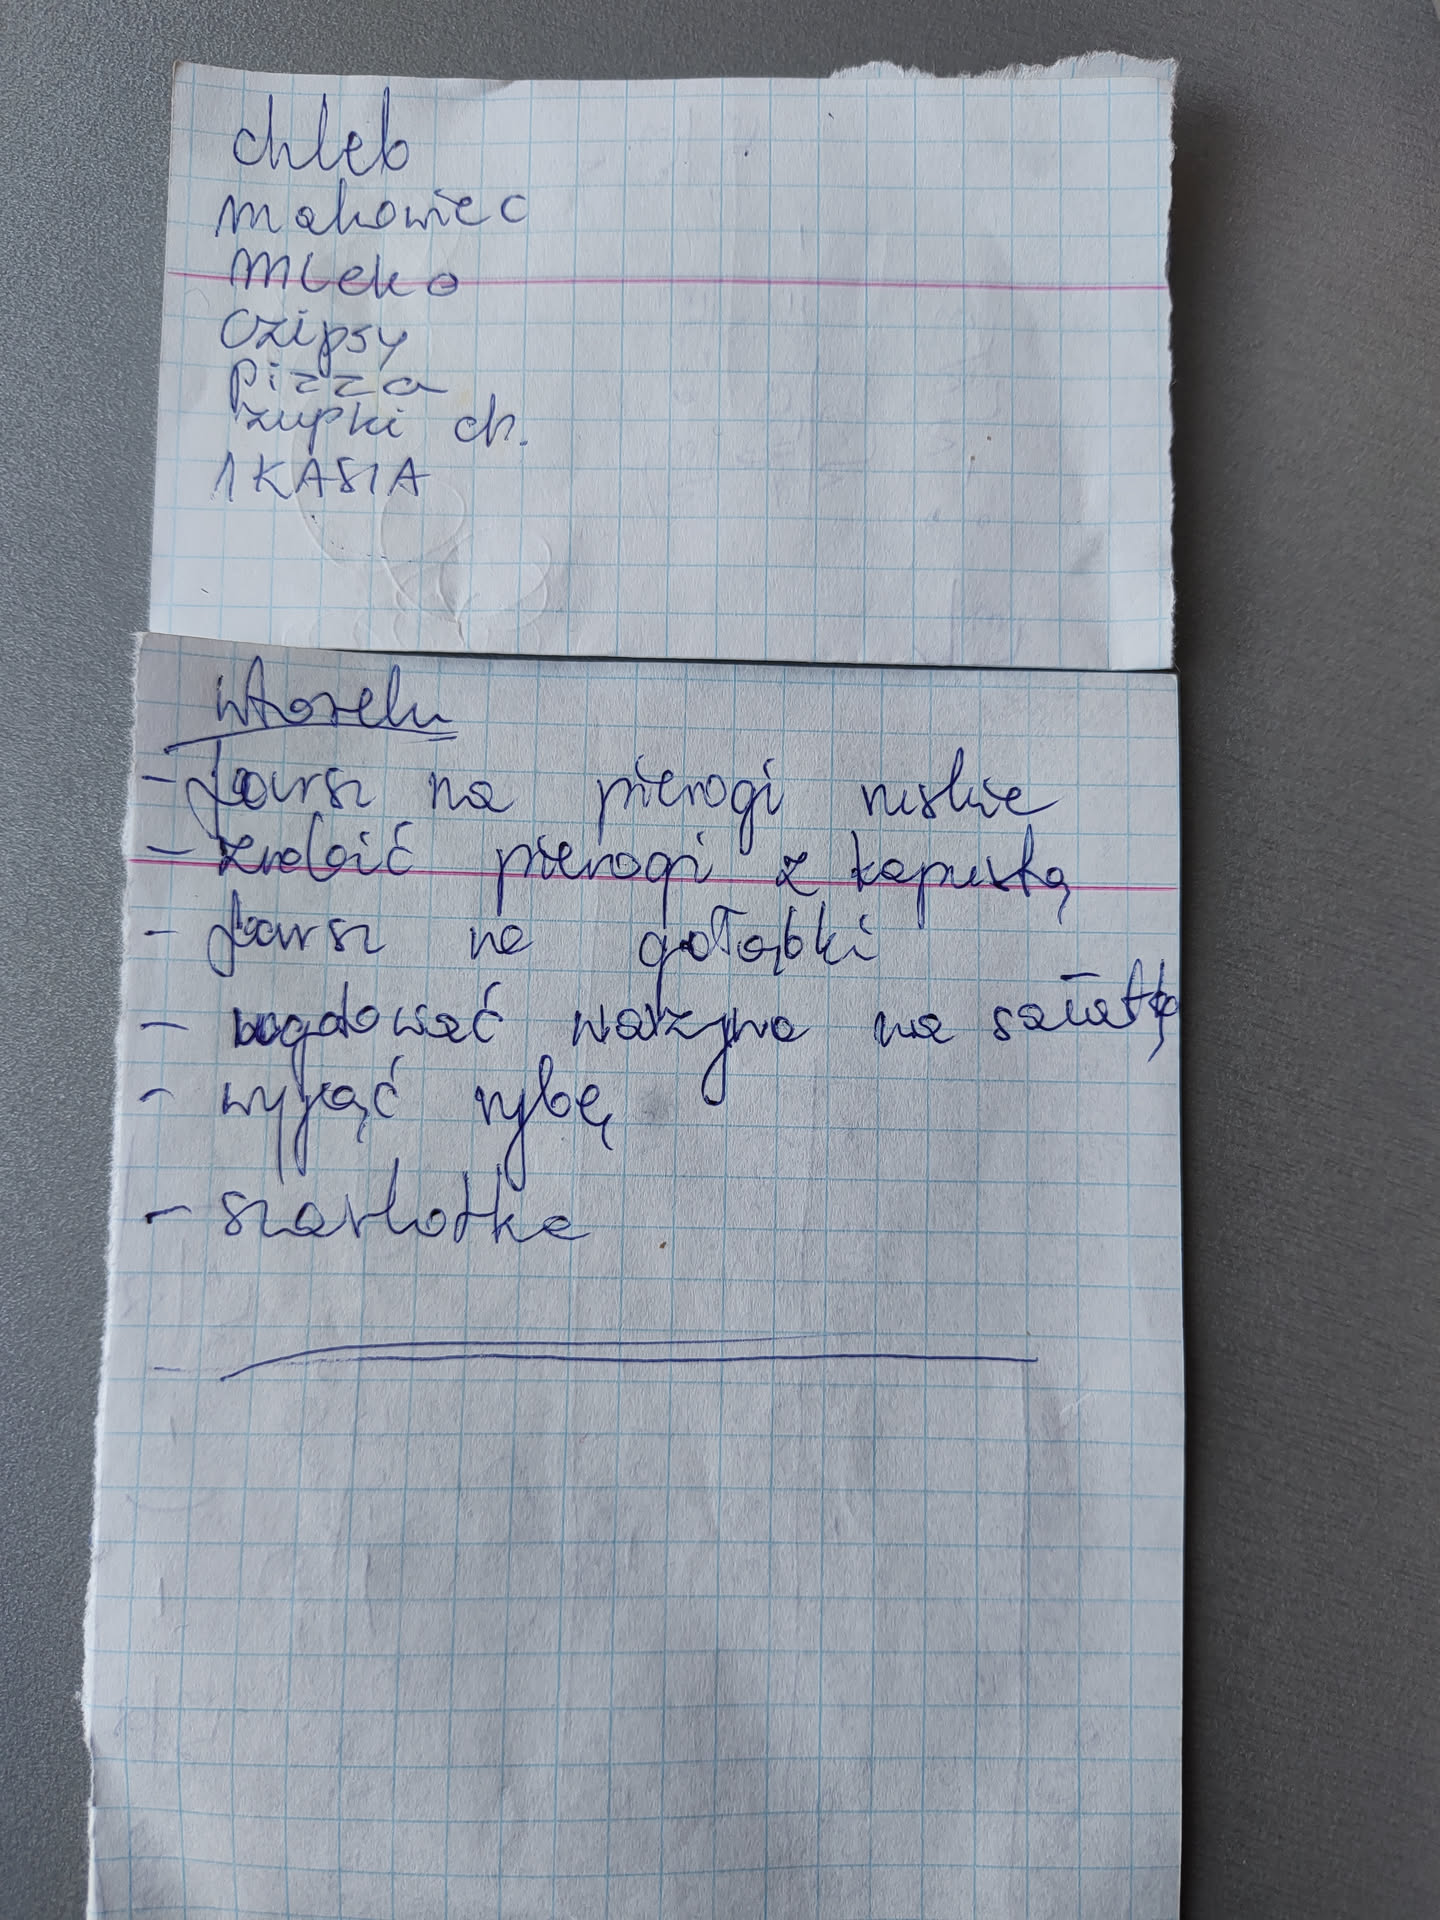 chleb
makowiec
mleko
czipsy
pizza
zupki ch.
1 KASIA
wtorek
- farsz na pierogi ruskie
- zrobić pierogi z kapustą
- farsz na gołąbki
- ugotować warzywa na sałatkę
- wyjąć rybę
- szarlotka